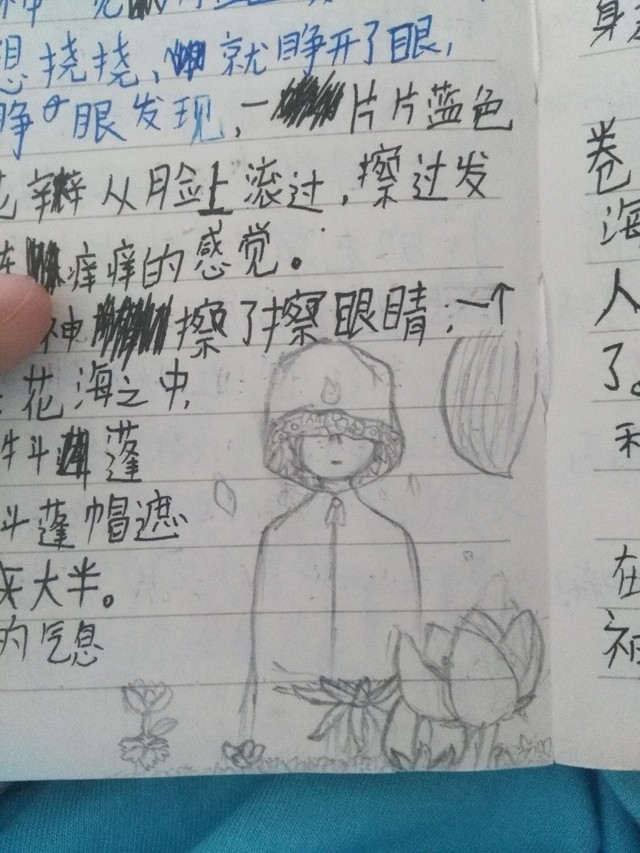 想挠挠，就睁开了眼，
睁眼发现，一片片蓝色
花瓣从脸上滚过，擦过发
痒痒的感觉。
神擦了擦眼睛，一个
花海之中，
斗蓬
斗蓬帽遮
大半。
的气息
身
卷
海
人
了。
和
在
神